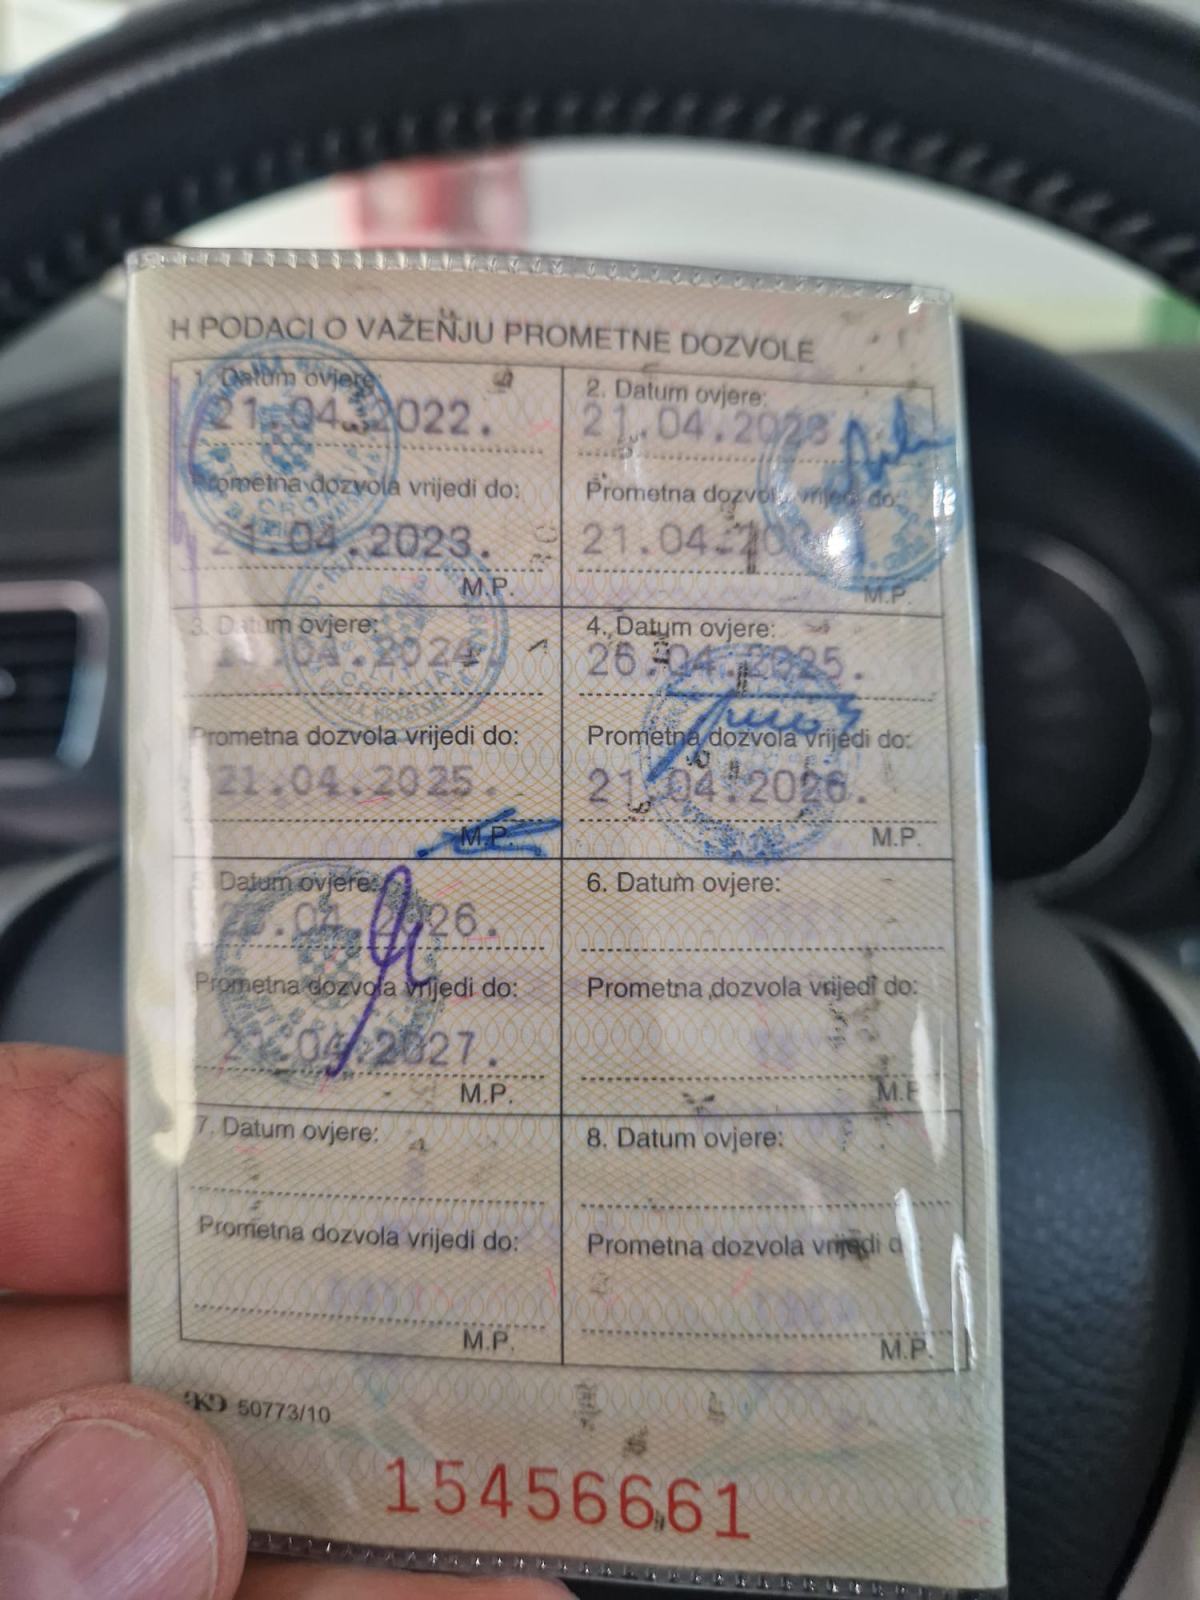 H PODACI O VAŽENJU PROMETNE DOZVOLE
1. Datum ovjere:
21.04.2022.
Prometna dozvola vrijedi do:
21.04.2023.
M.P.
2. Datum ovjere:
21.04.
Prometna dozvola vrijedi do:
21.04.
M.P.
3. Datum ovjere:
.04.2024.
Prometna dozvola vrijedi do:
21.04.2025.
M.P.
4. Datum ovjere:
26.04.2025.
Prometna dozvola vrijedi do:
21.04.2026.
M.P.
5. Datum ovjere:
.04.2026.
Prometna dozvola vrijedi do:
.04.2027.
M.P.
6. Datum ovjere:
Prometna dozvola vrijedi do:
M.P.
7. Datum ovjere:
Prometna dozvola vrijedi do:
M.P.
8. Datum ovjere:
Prometna dozvola vrijedi d
M.P.
AKD 50773/10
15456661